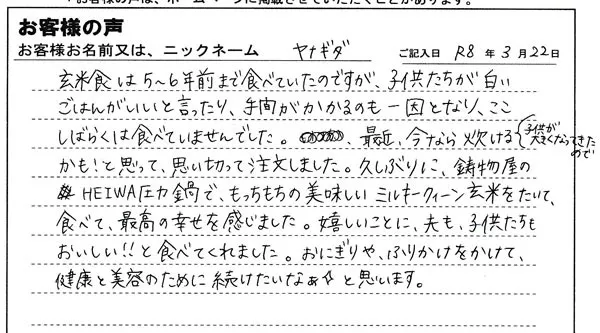 お客様の声
お客様お名前又は、ニックネーム ヤナギダ ご記入日 R8年3月22日
玄米食は5〜6年前まで食べていたのですが、子供たちが白い
ごはんがいいと言ったり、手間がかかるのも一因となり、ここ
しばらくは食べていませんでした。最近、今なら炊ける(子供が大きくなってきたので)
かも!と思って、思い切って注文しました。久しぶりに、鋳物屋の
HEIWA圧力鍋で、もっちもちの美味しいミルキークィーン玄米をたいて、
食べて、最高の幸せを感じました。嬉しいことに、夫も、子供たちも
おいしい!!と食べてくれました。おにぎりや、ふりかけをかけて、
健康と美容のために続けたいなぁ☆と思います。